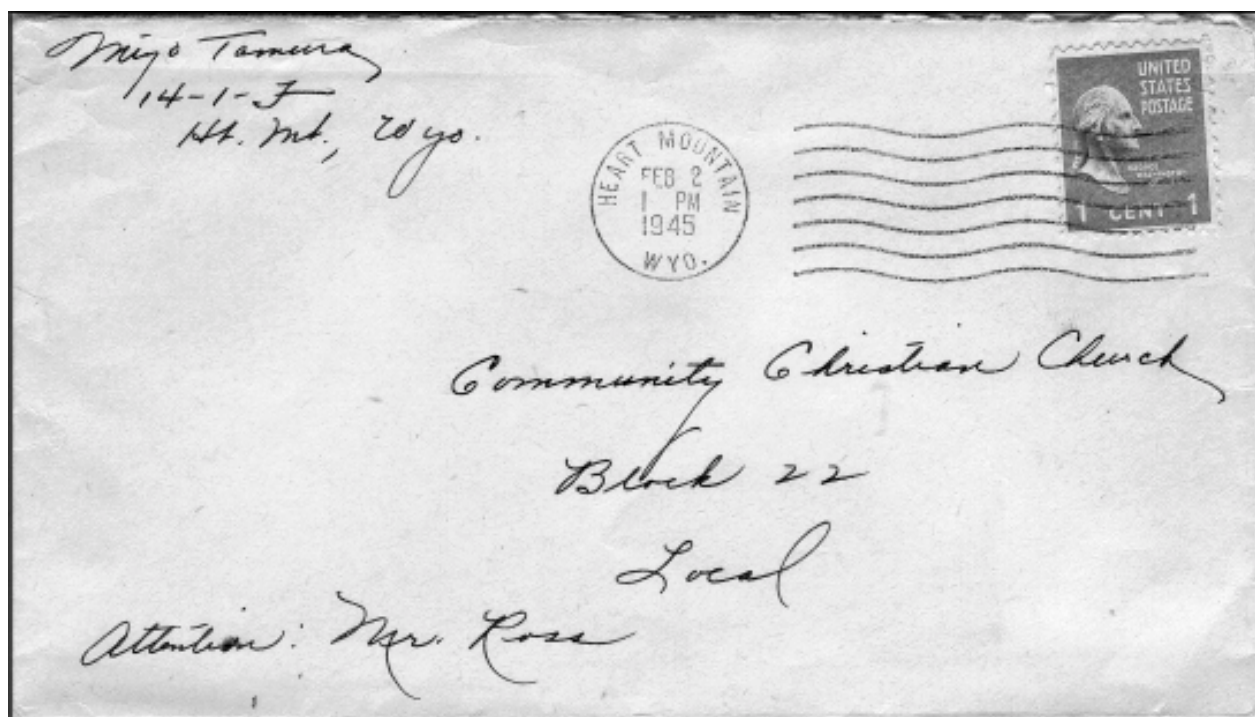 Miyo Tamura
14-1-F
Ht. Mt., Wyo.
HEART MOUNTAIN
FEB 2
1 PM
1945
WYO.
UNITED
STATES
POSTAGE
GEORGE
WASHINGTON
1 CENT 1
Community Christian Church
Block 22
Local
Attention: Mr. Ross